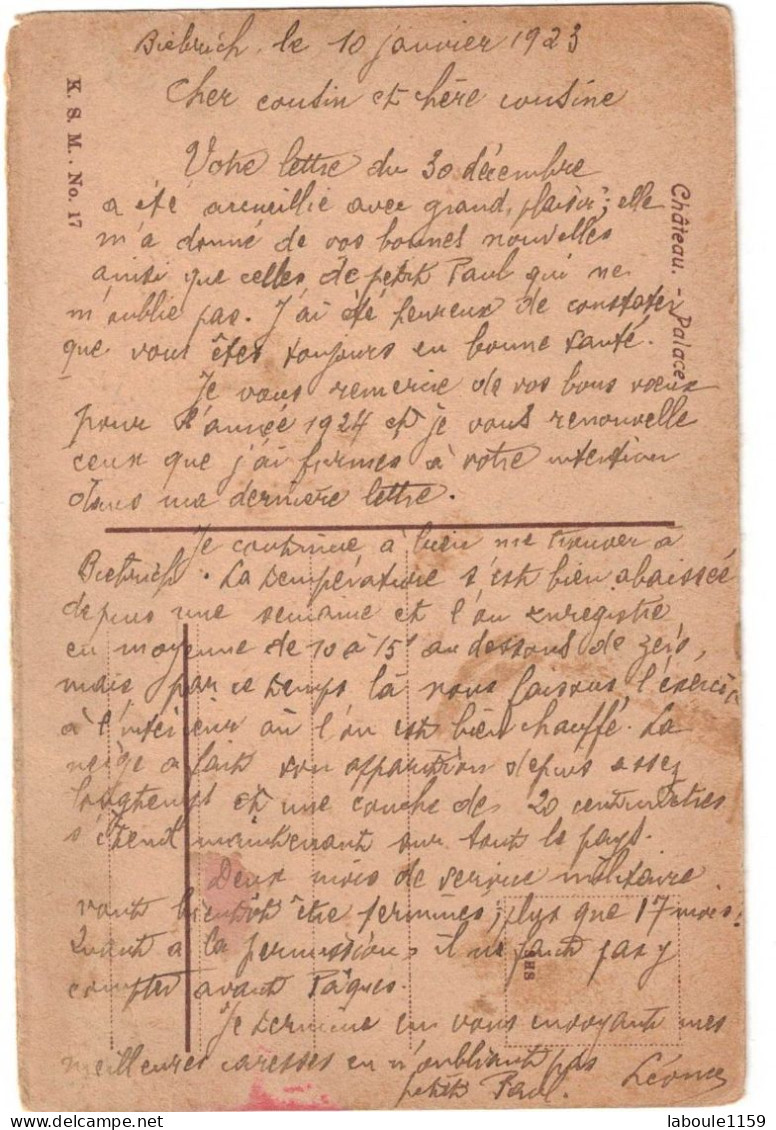 Biebrich, le 10 janvier 1923
Cher cousin et chère cousine
Votre lettre du 30 décembre
a été accueillie avec grand plaisir; elle
m'a donné de vos bonnes nouvelles
ainsi que celles de petit Paul qui ne
m'oublie pas. J'ai été heureux de constater
que vous êtes toujours en bonne santé.
Je vous remercie de vos bons vœux
pour l'année 1924 et je vous renouvelle
ceux que j'ai formés à votre intention
dans ma dernière lettre.
Je continue à bien me trouver à
Biebrich. La température s'est bien abaissée
depuis une semaine et l'on enregistre
en moyenne de 10 à 15° au dessous de zéro,
mais par ce temps là nous faisons l'exercice
à l'intérieur où l'on est bien chauffé. La
neige a fait son apparition depuis assez
longtemps et une couche de 20 centimètres
s'étend maintenant sur tout le pays.
Deux mois de service militaire
vont bientôt être terminés; plus que 17 mois!
Quant à la permission, il ne faut pas y
compter avant Pâques.
Je termine en vous envoyant mes
meilleures caresses en n'oubliant pas
petit Paul. Léonce
K. S. M. - No. 17
Château. - Palace
SHS
laboule1159